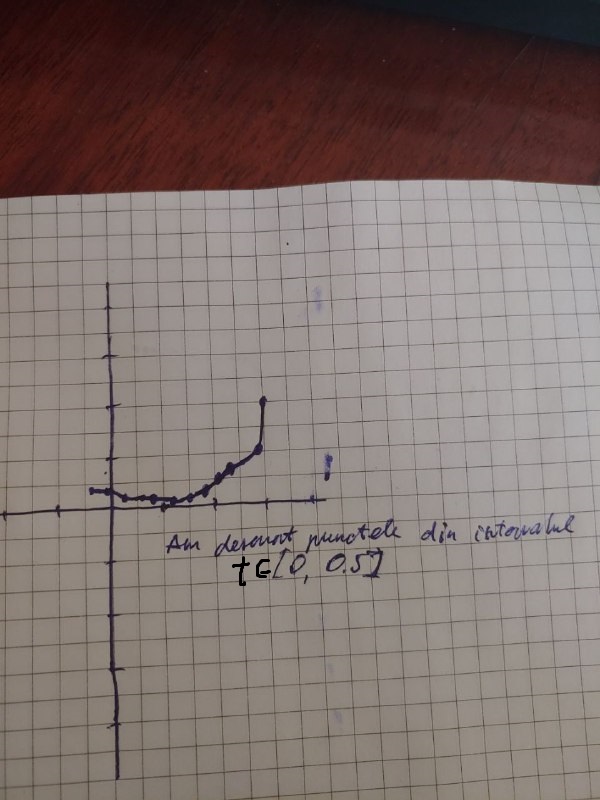 Am desenat punctele din intervalul
t∈[0, 0.5]